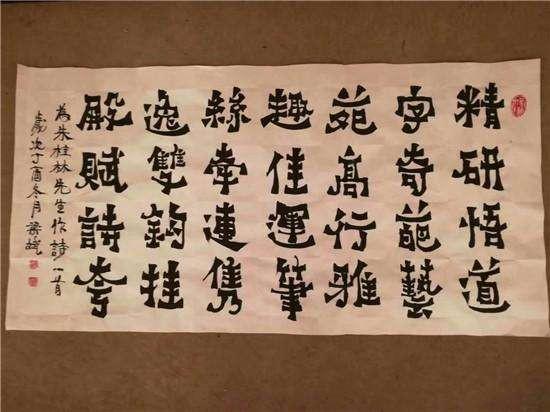 精研悟道
字奇葩藝
苑高行雅
趣佳運筆
絲牽連隽
逸雙鈎挂
殿賦詩夸
為朱桂林先生作詩一首
歲次丁酉冬月